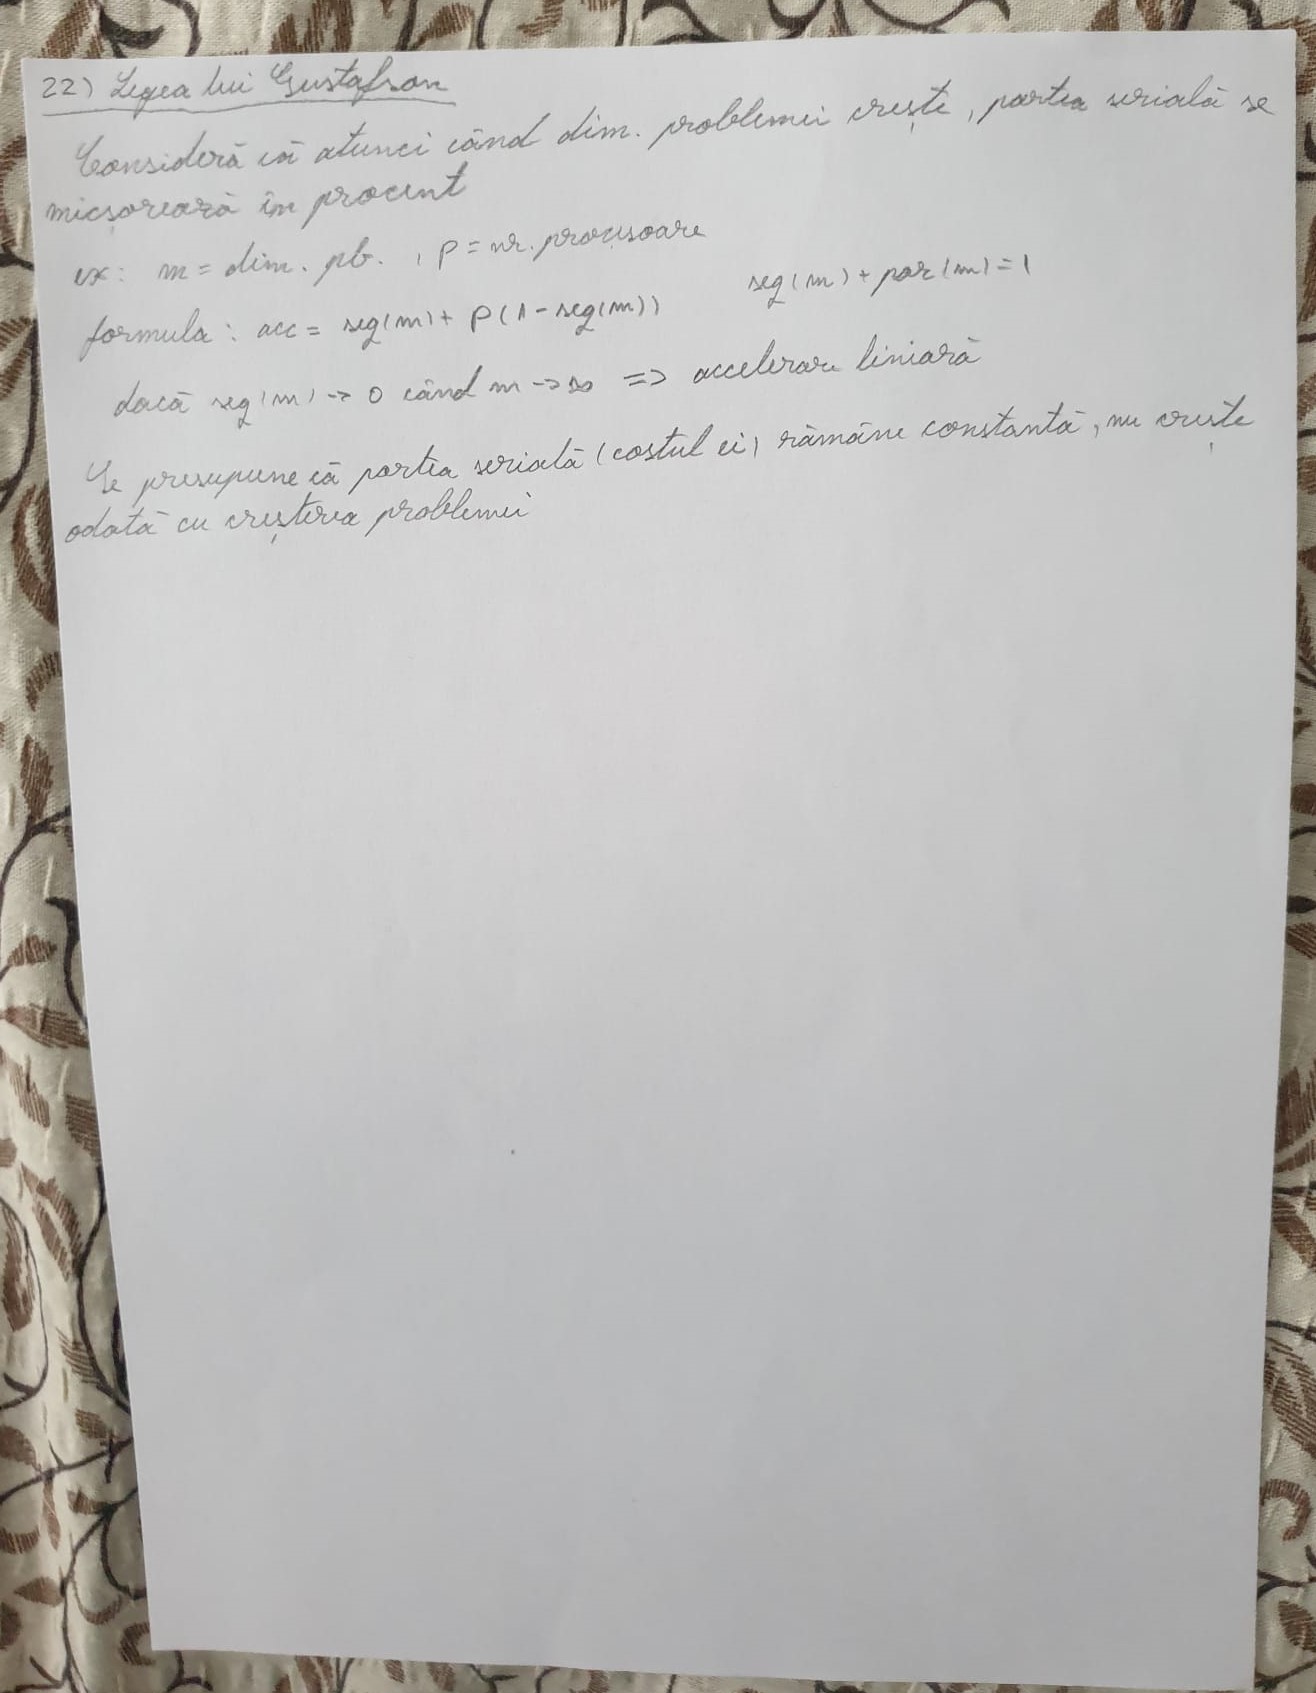 22) Legea lui Gustafson
Consideră că atunci când dim. problemei crește, partea serială se
micșorează în procent
ex: m = dim. pb. , p = nr. procesoare
formula: acc = seg(m) + p(1 - seg(m)) seg(m) + par(m) = 1
dacă seg(m) -> 0 când m -> ∞ => accelerare liniară
Se presupune că partea serială (costul ei) rămâne constantă, nu crește
odată cu creșterea problemei